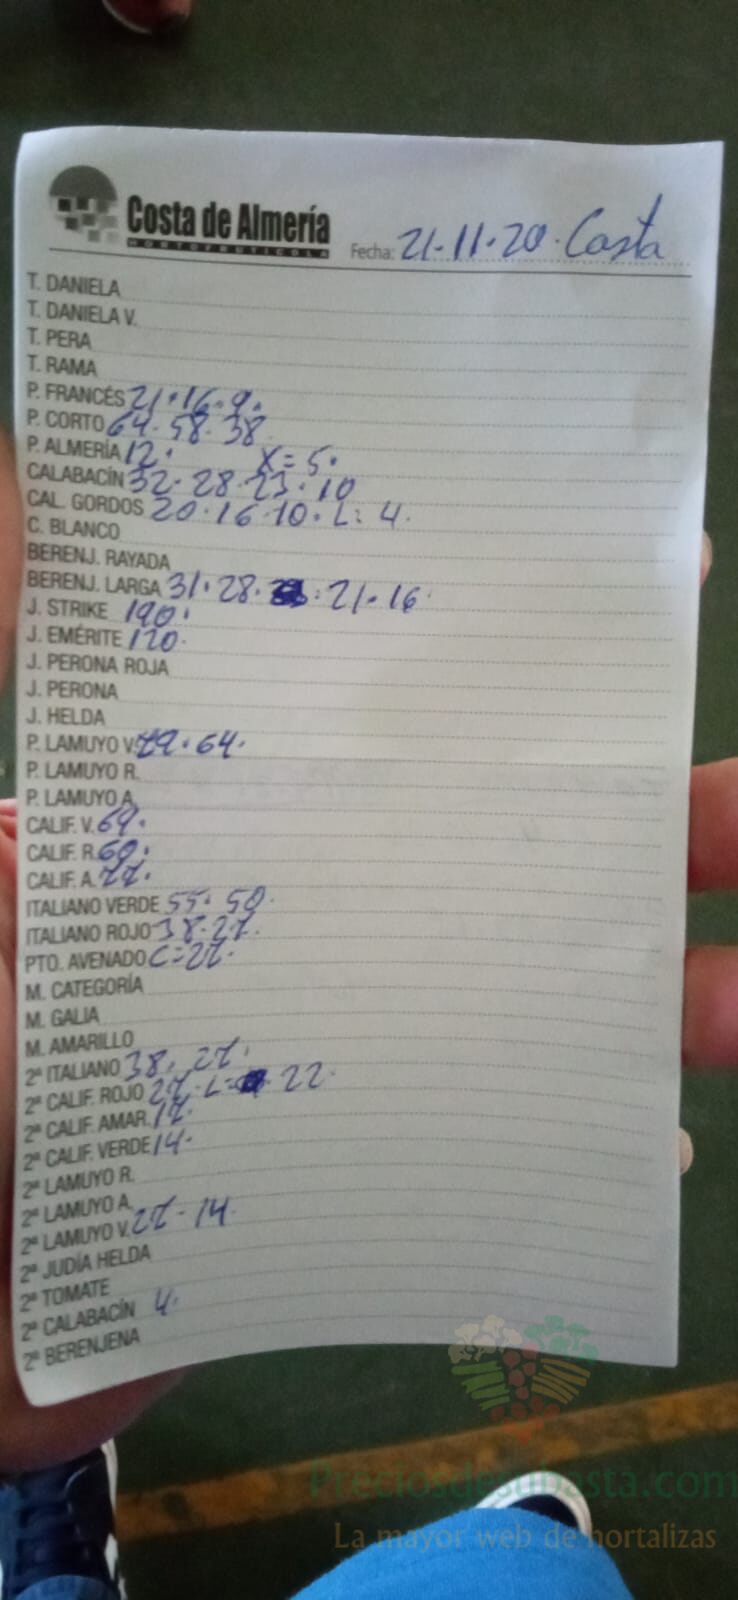 Costa de Almería
HORTOFRUTÍCOLA
Fecha: 21·11·20· Costa
T. DANIELA
T. DANIELA V.
T. PERA
T. RAMA
P. FRANCÉS 21·16·9·
P. CORTO 64·58·38
P. ALMERÍA 12· X=5·
CALABACÍN 32·28·23·10
CAL. GORDOS 20·16·10·L:4·
C. BLANCO
BERENJ. RAYADA
BERENJ. LARGA 31·28· 21·16·
J. STRIKE 190·
J. EMÉRITE 120·
J. PERONA ROJA
J. PERONA
J. HELDA
P. LAMUYO V. 79·64·
P. LAMUYO R.
P. LAMUYO A.
CALIF. V. 69·
CALIF. R. 60·
CALIF. A. 77·
ITALIANO VERDE 55·50·
ITALIANO ROJO 38·27·
PTO. AVENADO C=27·
M. CATEGORÍA
M. GALIA
M. AMARILLO
2ª ITALIANO 38·27·
2ª CALIF. ROJO 27·L= 22·
2ª CALIF. AMAR. 17·
2ª CALIF. VERDE 14·
2ª LAMUYO R.
2ª LAMUYO A.
2ª LAMUYO V. 27·14
2ª JUDÍA HELDA
2ª TOMATE
2ª CALABACÍN 4·
2ª BERENJENA
Preciosdesubasta.com
La mayor web de hortalizas